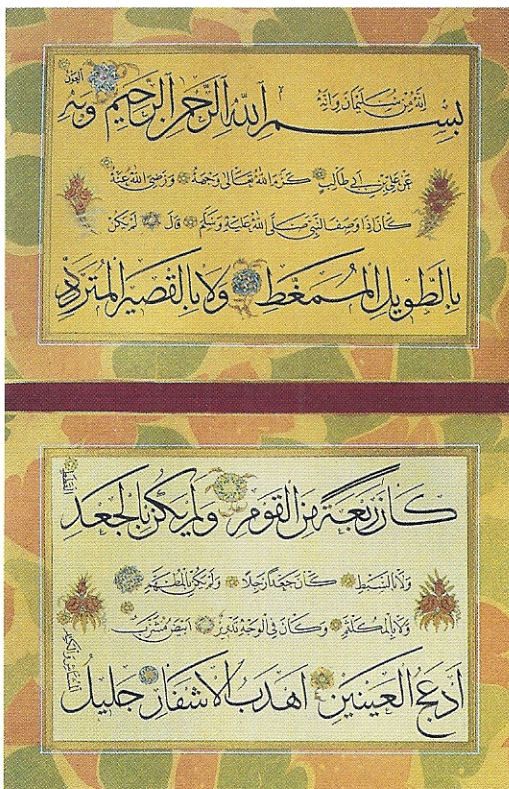 إنه من سليمان وإنه
بسم الله الرحمن الرحيم وبه العون
عن علي بن أبي طالب كرم الله تعالى وجهه ورضي الله عنه
كان إذا وصف النبي صلى الله عليه وسلم قال لم يكن
بالطويل الممغط ولا بالقصير المتردد
كان ربعة من القوم ولم يكن بالجعد القطط
ولا بالسبط كان جعدا رجلا ولم يكن بالمطهم
ولا بالمكلثم وكان في الوجه تدوير أبيض مشرب
أدعج العينين أهدب الأشفار جليل المشاش والكتد